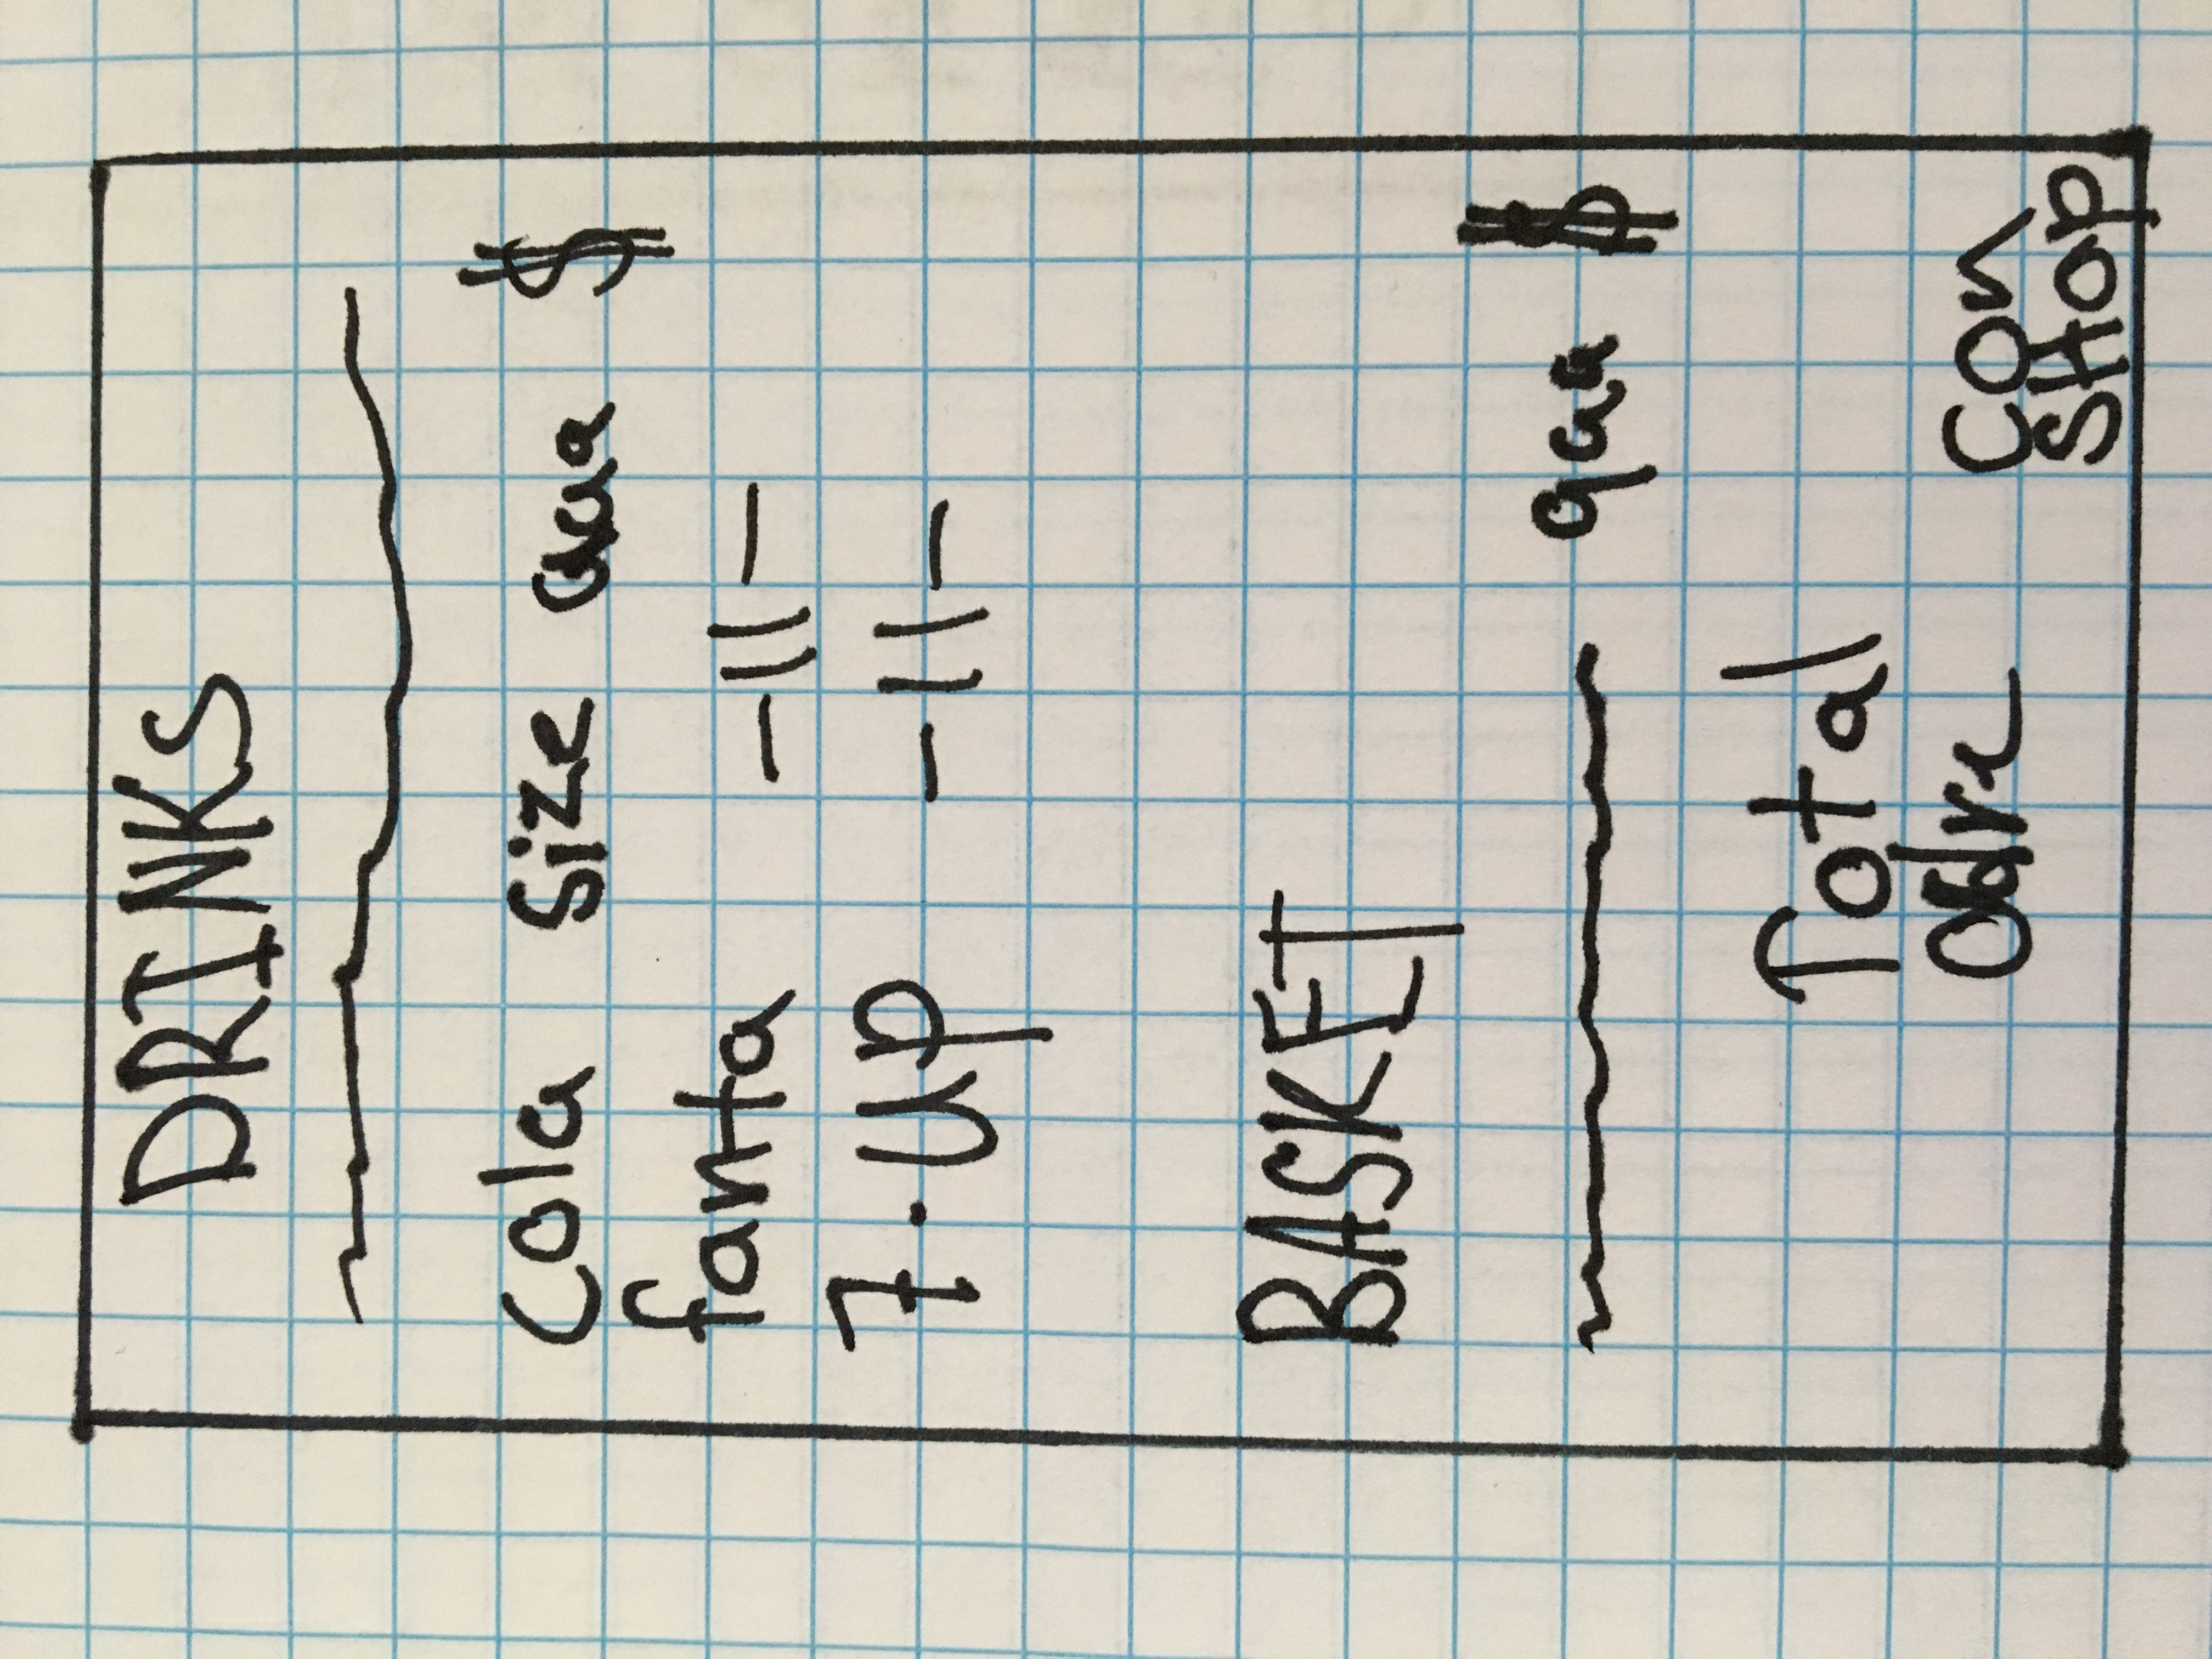 DRINKS
cola size aaa $
fanta -11-
7.up -11-
BASKET
qaa $
Total
con
SHop